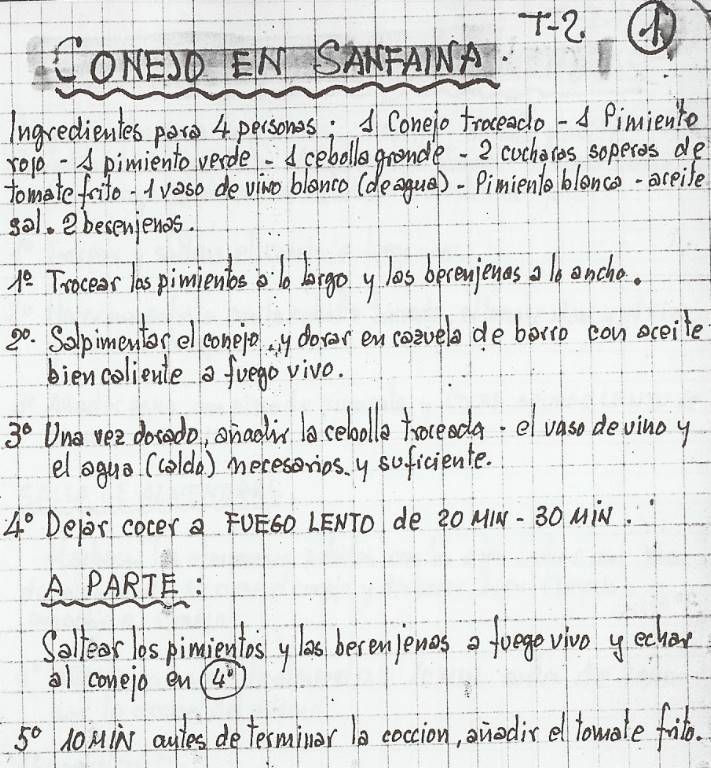 T-2 1
CONEJO EN SANFAINA.
Ingredientes para 4 personas: 1 Conejo troceado - 1 Pimiento
rojo - 1 pimiento verde - 1 cebolla grande - 2 cucharas soperas de
tomate frito - 1 vaso de vino blanco (de agua) - Pimienta blanca - aceite
sal. 2 berenjenas.
1º Trocear los pimientos a lo largo y las berenjenas a lo ancho.
2º. Salpimentar el conejo, y dorar en cazuela de barro con aceite
bien caliente a fuego vivo.
3º Una vez dorado, añadir la cebolla troceada - el vaso de vino y
el agua (caldo) necesarios y suficiente.
4º Dejar cocer a FUEGO LENTO de 20 MIN - 30 MIN.
A PARTE:
Saltear los pimientos y las berenjenas a fuego vivo y echar
al conejo en 4º
5º 10 MIN antes de terminar la coccion, añadir el tomate frito.